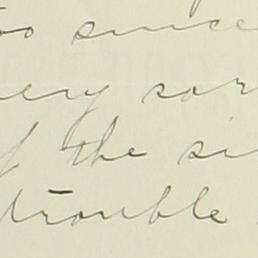 too since
very sor
of the si
trouble